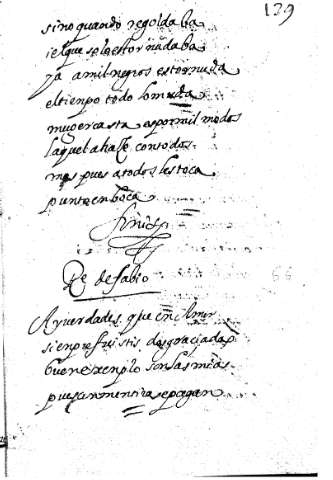 129
sino quando regoldaba
i el que solo estornudaba
ya a mil negros estornuda
el tienpo todo lo muda
muger casta es por mil modos
la que la haze con todos
mas pues a todos les toca
punto en boca
finis
Re de fabio
Ay verdades que en Amor
sienpre fuistis desgraciadas
buen exenplo son las mias
pues con mentira se pagan